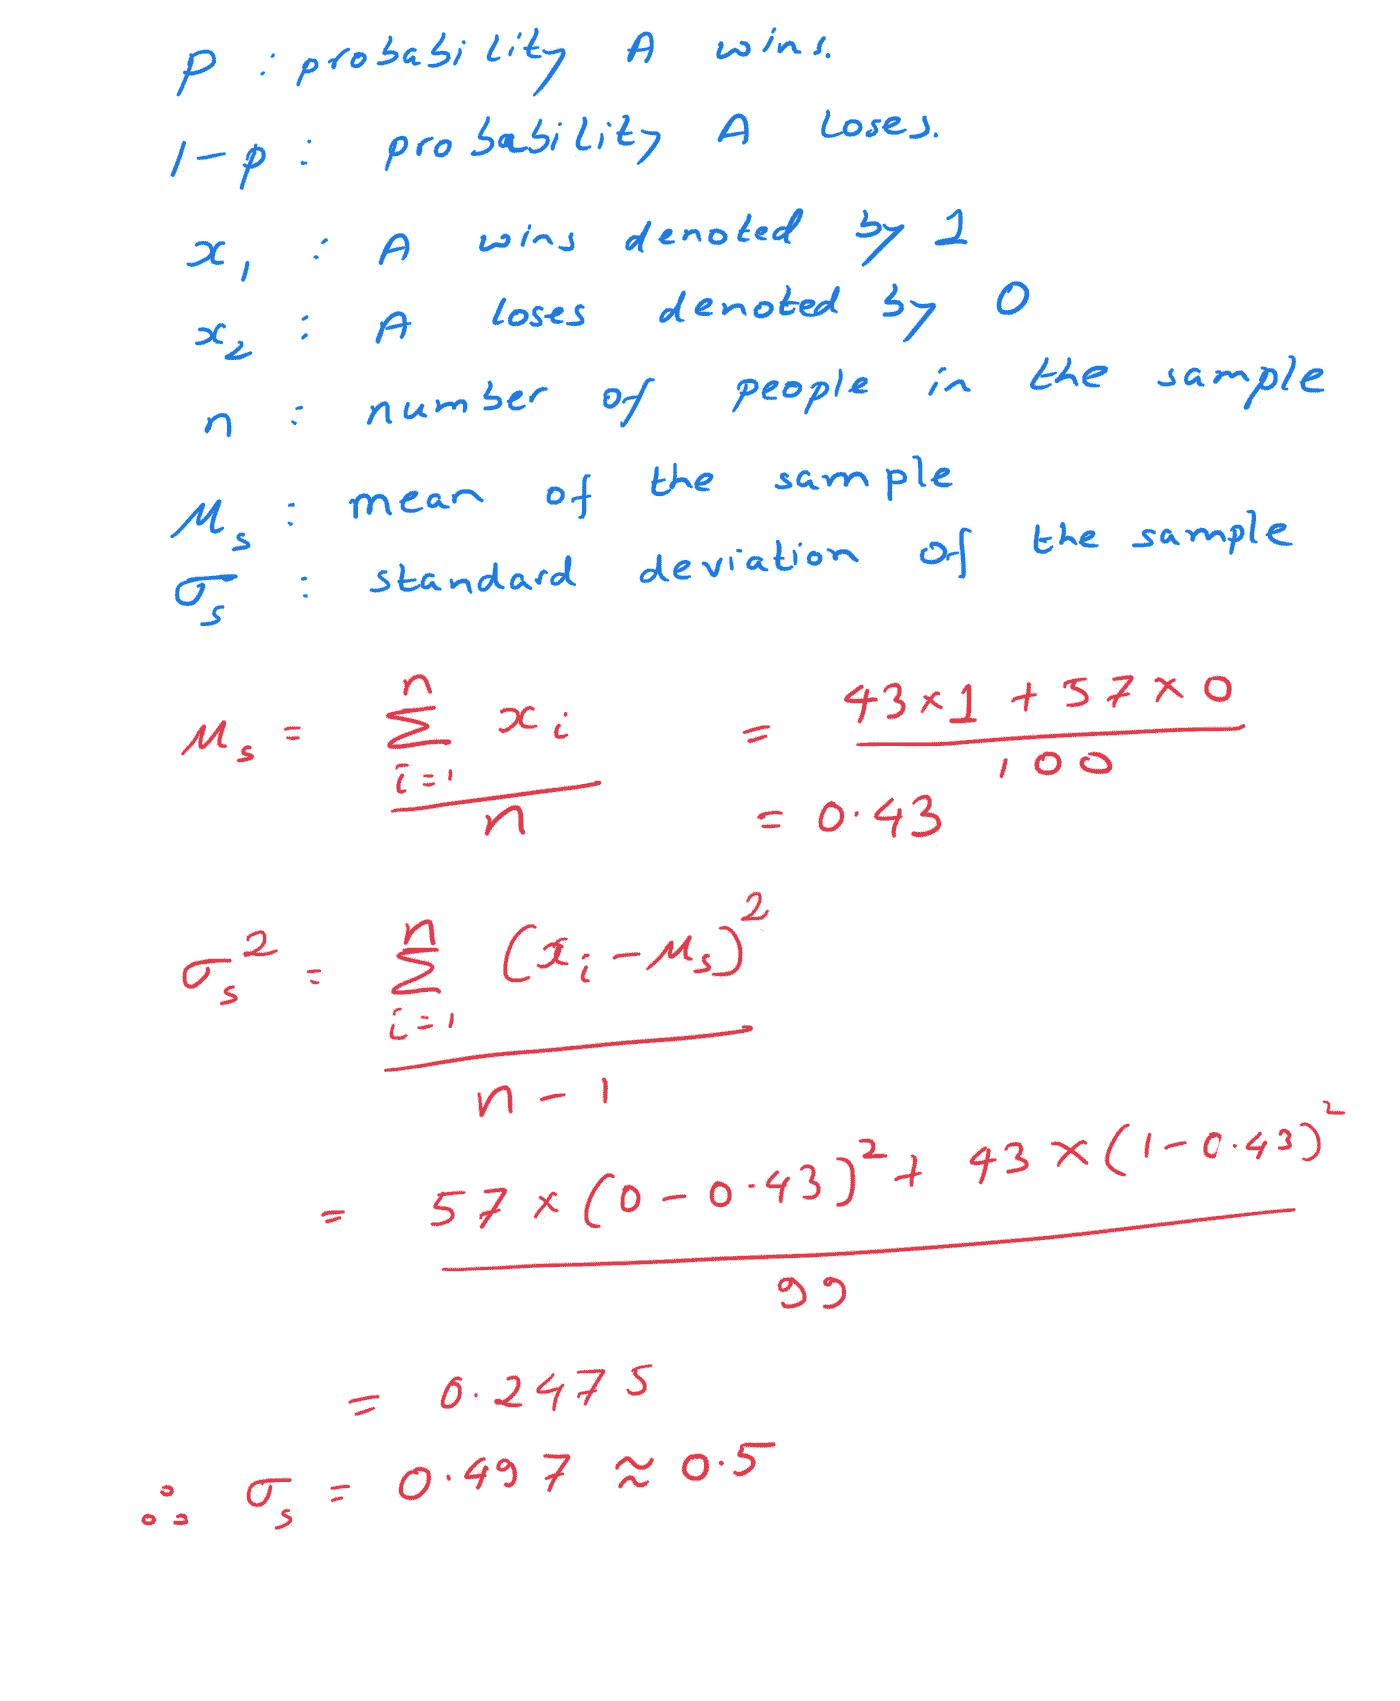 P : probability A wins.
1-p : probability A loses.
x₁ : A wins denoted by 1
x₂ : A loses denoted by 0
n : number of people in the sample
μₛ : mean of the sample
σₛ : standard deviation of the sample
μₛ = (Σ_{i=1}^{n} xᵢ) / n = (43×1 + 57×0) / 100
= 0.43
σₛ² = (Σ_{i=1}^{n} (xᵢ - μₛ)²) / (n-1)
= (57 × (0 - 0.43)² + 43 × (1 - 0.43)²) / 99
= 0.2475
∴ σₛ = 0.497 ≈ 0.5